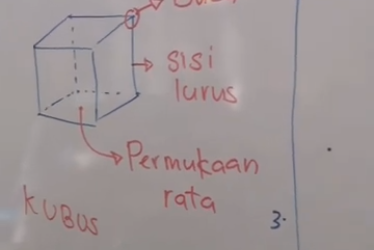 sisi
lurus
Permukaan
rata
KUBUS
3.